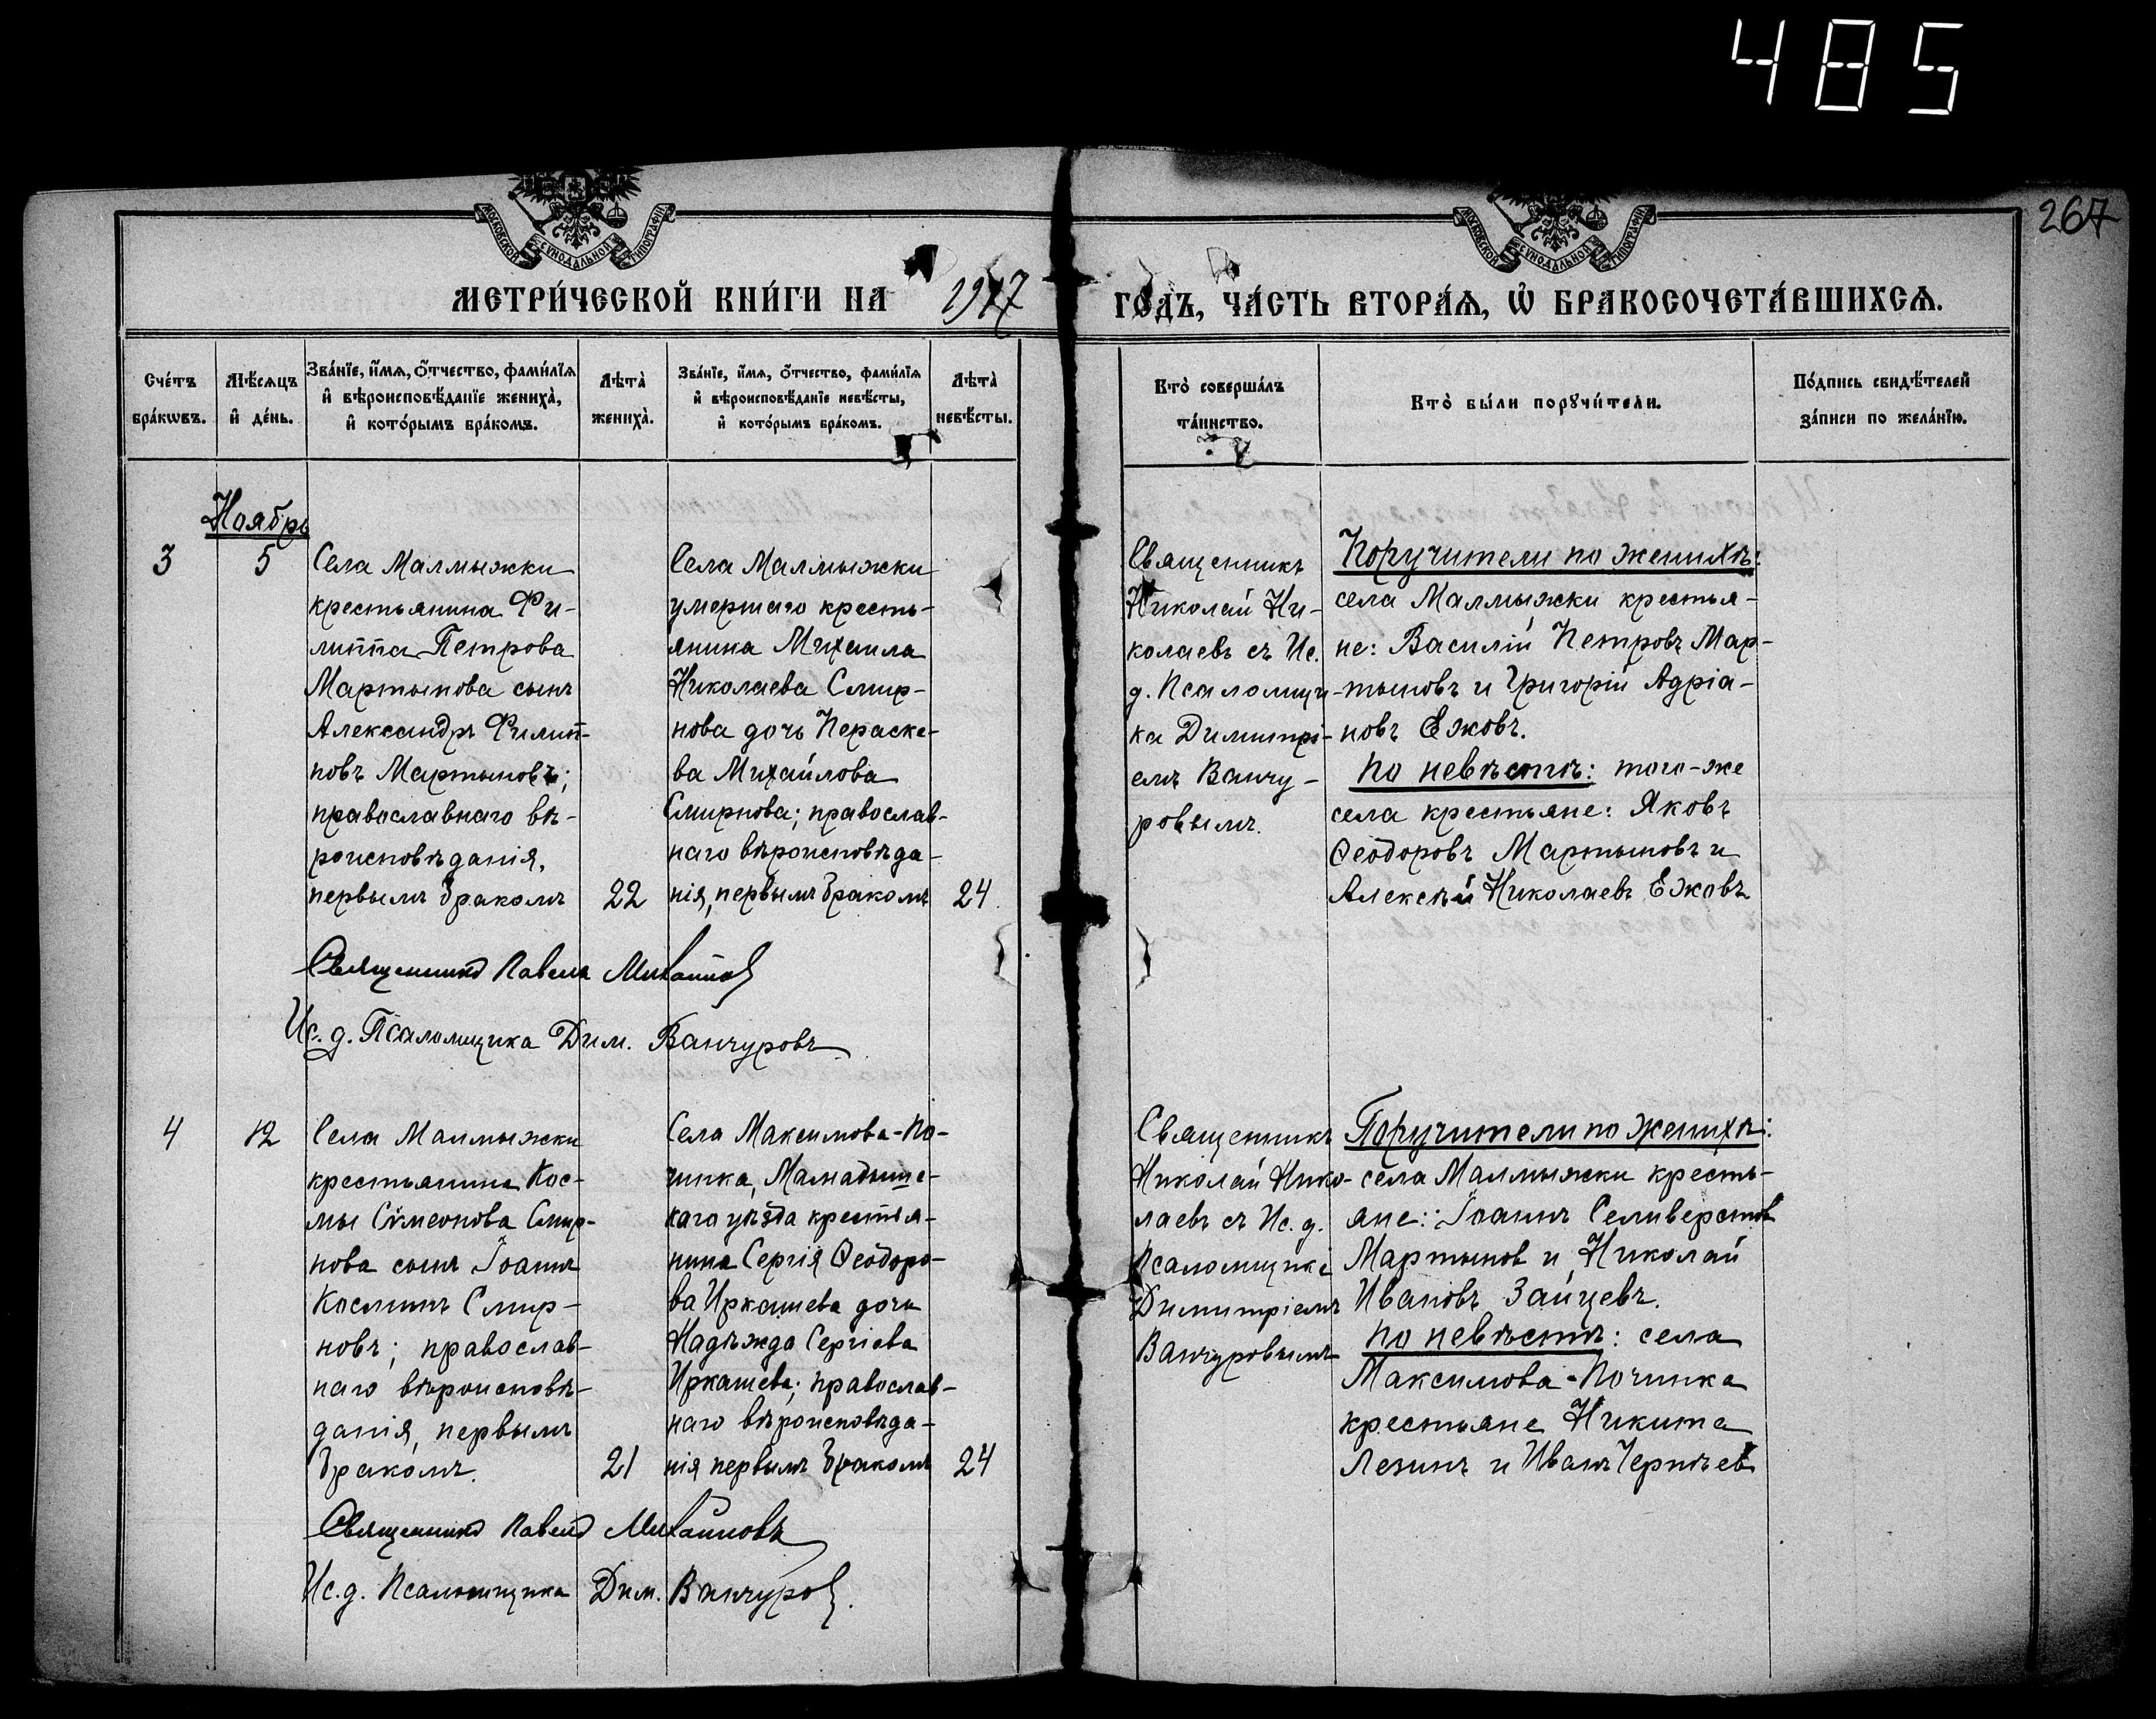 485
267
МОСКОВСКОЙ СѴНОДАЛЬНОЙ ТИПОГРАФІИ
МОСКОВСКОЙ СѴНОДАЛЬНОЙ ТИПОГРАФІИ
МЕТРИ́ЧЕСКОЙ КНИ́ГИ НА 1917 ГОДЪ, ЧА́СТЬ ВТОРА́Ѧ, Ѽ БРАКОСОЧЕТА́ВШИХСѦ.
Сче́тъ бра́кѡвъ.
Мѣ́сѧцъ и҆ де́нь.
Зва́нїе, и҆́мѧ, о҆́тчество, фами́лїѧ и҆ вѣроисповѣ́данїе жениха̀, и҆ кото́рымъ бра́комъ.
Лѣта̀ жениха̀.
Зва́нїе, и҆́мѧ, о҆́тчество, фами́лїѧ и҆ вѣроисповѣ́данїе невѣ́сты, и҆ кото́рымъ бра́комъ.
Лѣта̀ невѣ́сты.
Кто̀ соверша́лъ та́инство.
Кто̀ бы́ли порꙋчи́тели.
По́дпись свидѣ́телей за́писи по жела́нїю.
Ноябрь
3
5
Села Малмыжки
крестьянина Фи-
липпа Петрова
Мартынова сынъ
Александръ Филип-
повъ Мартыновъ;
православнаго вѣ-
роисповѣданія,
первымъ бракомъ
22
Села Малмыжки
умершаго кресть-
янина Михаила
Николаева Смир-
нова дочь Параске-
ва Михайлова
Смирнова; православ-
наго вѣроисповѣда-
нія, первымъ бракомъ
24
Священникъ
Николай Ни-
колаевъ съ Ис.
д. Псаломщи-
ка Димитрі-
емъ Ванчу-
ровымъ.
Поручители по женихѣ:
села Малмыжки крестья-
не: Василій Петровъ Мар-
тыновъ и Григорій Адріа-
новъ Ежовъ.
По невѣстѣ: того-же
села крестьяне: Яковъ
Ѳеодоровъ Мартыновъ и
Алексѣй Николаевъ Ежовъ
Священникъ Павелъ Михайлов
Ис. д. Псаломщика Дим. Ванчуровъ
4
12
Села Малмыжки
крестьянина Кос-
мы Сѵмеонова Смир-
нова сынъ Іоаннъ
Косминъ Смир-
новъ; православ-
наго вѣроисповѣ-
данія, первымъ
бракомъ.
21
Села Максимова-По-
чинка, Мамадышс-
каго уѣзда крестья-
нина Сергія Ѳеодоро-
ва Иркашева дочь
Надѣжда Сергіева
Иркашева; православ-
наго вѣроисповѣда-
нія первымъ бракомъ
24
Священникъ
Николай Нико-
лаевъ съ Ис. д.
Псаломщика
Димитріемъ
Ванчуровымъ
Поручители по женихѣ:
села Малмыжки кресть-
яне: Іоаннъ Селиверстов
Мартынов и Николай
Ивановъ Зайцевъ.
По невѣстѣ: села
Максимова-Починка
крестьяне Никита
Лезинъ и Иванъ Чернѣев
Священникъ Павелъ Михайловъ
Ис. д. Псаломщика Дим. Ванчуров.